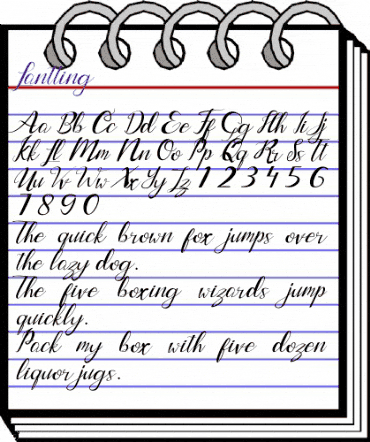 fantting
Aa Bb Cc Dd Ee Ff Gg Hh Ii Jj
Kk Ll Mm Nn Oo Pp Qq Rr Ss Tt
Uu Vv Ww Xx Yy Zz 1 2 3 4 5 6
7 8 9 0
The quick brown fox jumps over
the lazy dog.
The five boxing wizards jump
quickly.
Pack my box with five dozen
liquor jugs.